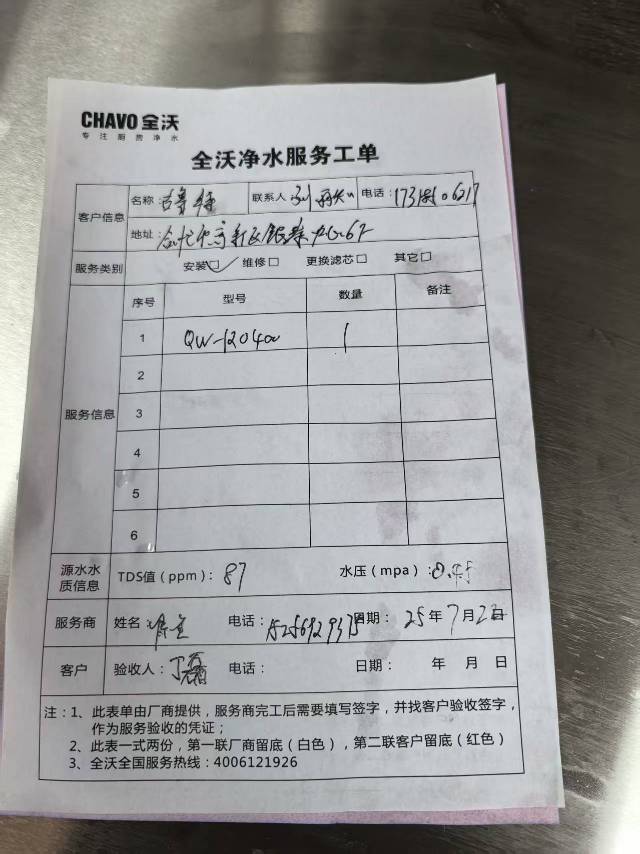 CHAVO全沃
专注厨房净水
全沃净水服务工单
客户信息
名称：
联系人
电话：
地址：
服务类别
安装□✓ 维修□ 更换滤芯□ 其它□
服务信息
序号 型号 数量 备注
1 QW-120400 1
2
3
4
5
6
源水水质信息
TDS值（ppm）：87 水压（mpa）：
服务商 姓名： 电话： 日期：25年7月2日
客户 验收人：丁磊 电话： 日期： 年 月 日
注：1、此表单由厂商提供，服务商完工后需要填写签字，并找客户验收签字，
作为服务验收的凭证；
2、此表一式两份，第一联厂商留底（白色），第二联客户留底（红色）
3、全沃全国服务热线：4006121926